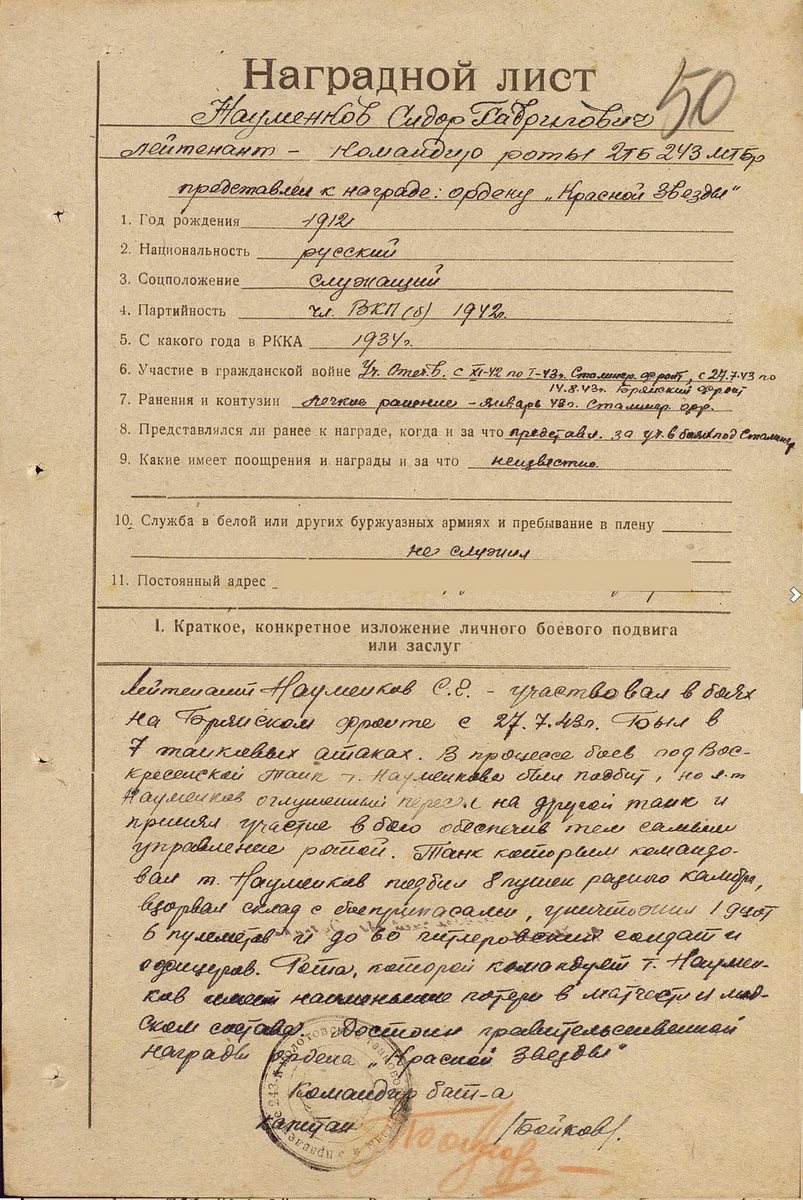 Наградной лист
50
Науменков Сидор Гаврилович
Лейтенант – командир роты 2ТБ 243 МТБр
представлен к награде: ордену „Красной Звезды"
1. Год рождения 1912
2. Национальность русский
3. Соцположение служащий
4. Партийность чл. ВКП(б) 1942г.
5. С какого года в РККА 1934г.
6. Участие в гражданской войне Уч. Отеч.в. с XI-42 по I-43г. Сталингр. Фронт, с 27.7.43 по
14.8.43г. Брянский Фронт
7. Ранения и контузии легкое ранение – январь 43г. Сталингр. фр.
8. Представлялся ли ранее к награде, когда и за что представл. за уч. в боях под Сталингр
9. Какие имеет поощрения и награды и за что неизвестно.
10. Служба в белой или других буржуазных армиях и пребывание в плену
не служил
11. Постоянный адрес
I. Краткое, конкретное изложение личного боевого подвига
или заслуг
Лейтенант Науменков С.Е. – участвовал в боях
на Брянском фронте с 27.7.43г. Был в
7 танковых атаках. В процессе боев под Вос-
кресенской танк т. Науменкова был подбит, но л-т
Науменков оглушенный пересел на другой танк и
принял участие в бою обеспечив тем самым
управление ротой. Танк которым командо-
вал т. Науменков подбил 8 пушек разного калибр,
взорвал склад с боеприпасами, уничтожил 1 дзот
6 пулеметов и до 60 гитлеровских солдат и
офицеров. Рота, которой командует т. Наумен-
ков имеет наименьшие потери в матчасти и люд-
ском составе. Достоин правительственной
награды ордена „Красной Звезды"
Командир бат-а
капитан /Бойков/.
Управление 243-й Молотовской Танковой